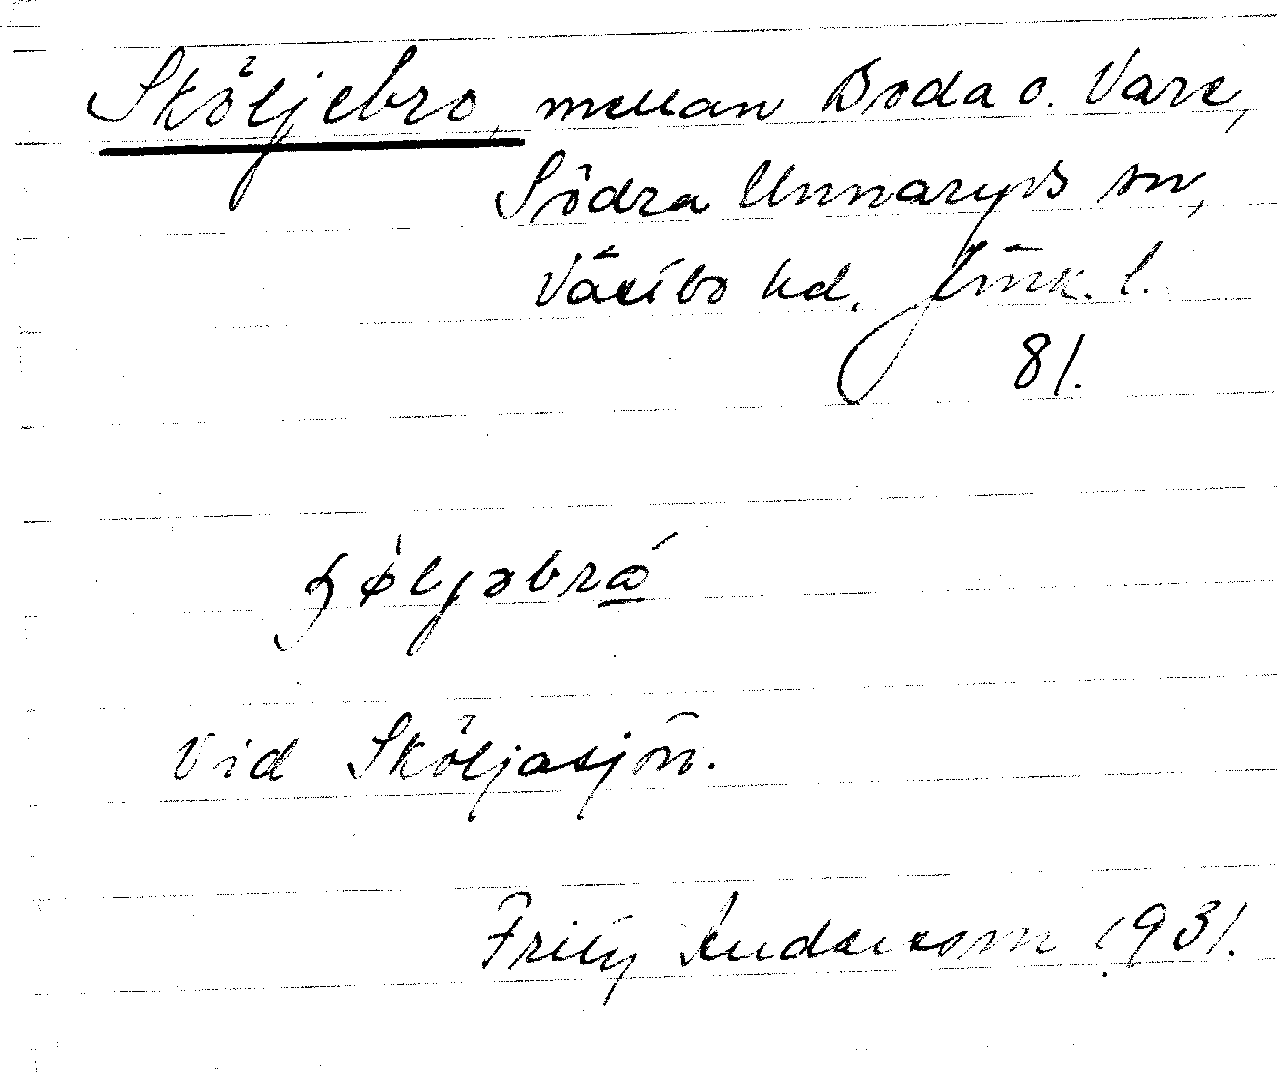 Sköljebro, mellan Boda o. Vare,
Södra Unnaryds sn,
Västbo hd. Jönk. l.
81.
Vid Sköljasjön.
Fritz Andersson 1931.